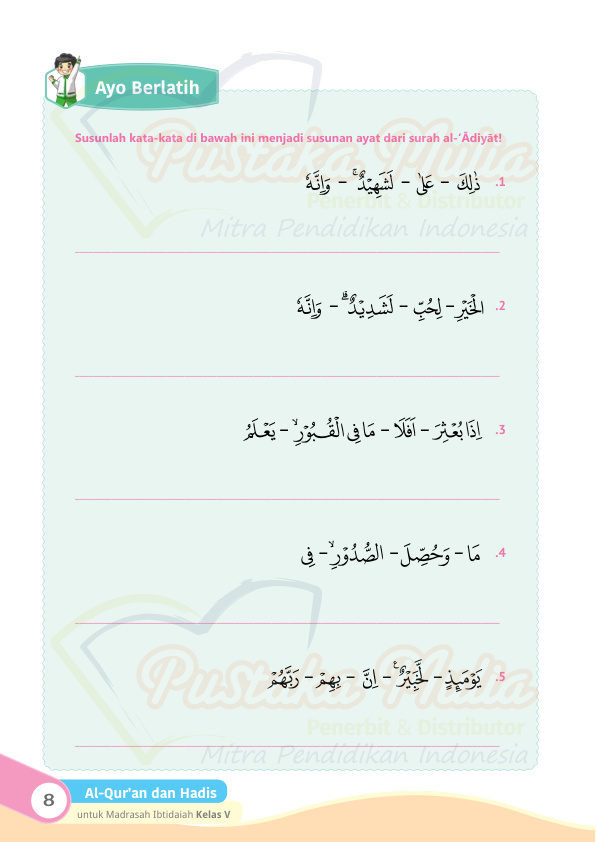 Ayo Berlatih
Susunlah kata-kata di bawah ini menjadi susunan ayat dari surah al-‘Ādiyāt!
Pustaka Mulia
.1 ذٰلِكَ – عَلٰى – لَشَهِيْدٌۚ – وَاِنَّهٗ
Penerbit & Distributor
Mitra Pendidikan Indonesia
.2 الْخَيْرِ – لِحُبِّ – لَشَدِيْدٌۗ – وَاِنَّهٗ
.3 اِذَا بُعْثِرَ – اَفَلَا – مَا فِى الْقُبُوْرِۙ – يَعْلَمُ
.4 مَا – وَحُصِّلَ – الصُّدُوْرِۙ – فِى
Pustaka Mulia
.5 يَوْمَىِٕذٍ – لَّخَبِيْرٌۚ – اِنَّ – بِهِمْ – رَبَّهُمْ
Penerbit & Distributor
Mitra Pendidikan Indonesia
8
Al-Qur'an dan Hadis
untuk Madrasah Ibtidaiah Kelas V